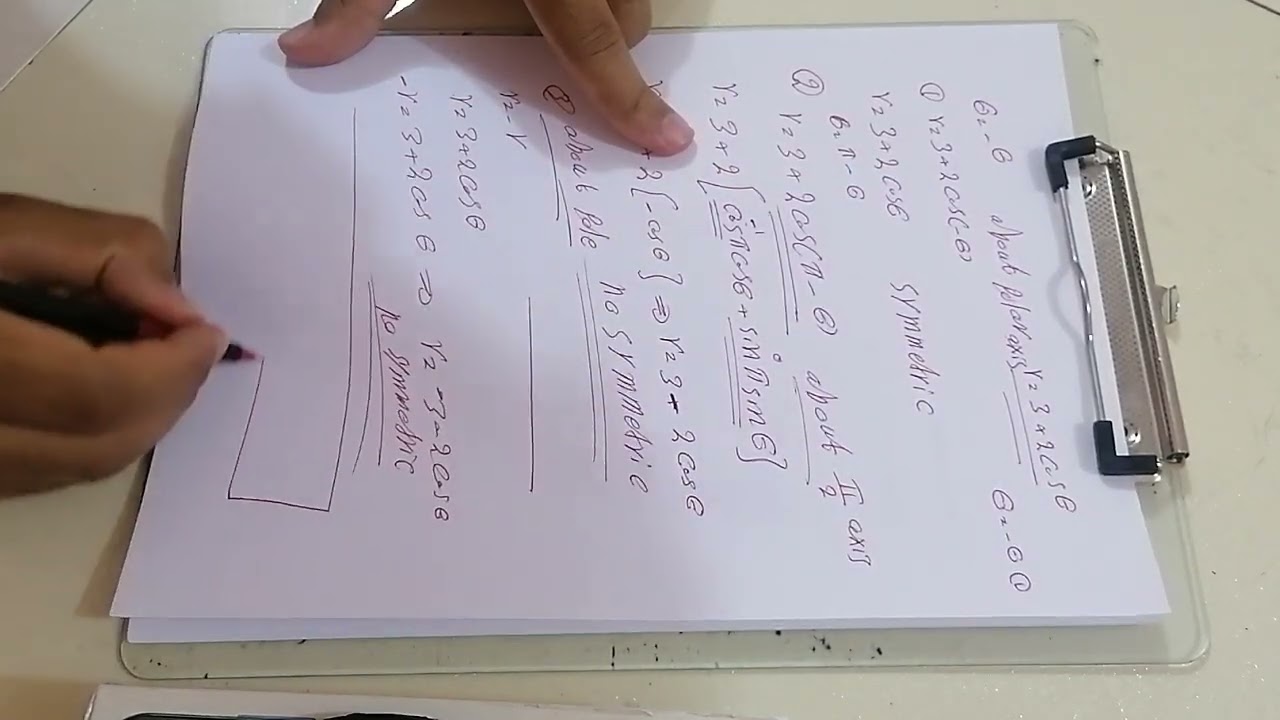 r = 3 + 2 cos θ
θ = -θ about polar axis θ = -θ ①
① r = 3 + 2 cos(-θ)
r = 3 + 2 cos θ symmetric
θ = π - θ
② r = 3 + 2 cos(π - θ) about π/2 axis
r = 3 + 2 [cos π cos θ + sin π sin θ]
-1 0
+ 2 [-cos θ] ⇒ r = 3 + 2 cos θ
③ about Pole no symmetric
r = -r
r = 3 + 2 cos θ
-r = 3 + 2 cos θ ⇒ r = -3 - 2 cos θ
no symmetric